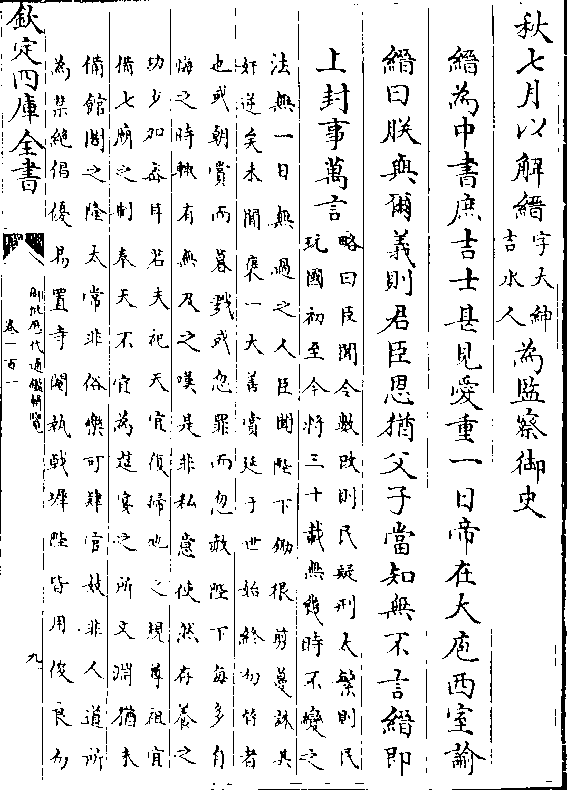 秋七月以解縉字大紳吉水人為監察御史
縉為中書庶吉士甚見愛重一日帝在大庖西室諭
縉曰朕與爾義則君臣恩猶父子當知無不言縉即
上封事萬言略曰臣聞令數改則民疑刑太繁則民
玩國初至今將三十載無幾時不變之
法無一日無過之人臣聞陛下鋤根剪蔓誅其
奸逆矣未聞褒一大善賞延于世始終勿替者
也或朝賞而暮戮或忽罪而忽赦陛下每多自
悔之時輒有無及之嘆是非私意使然存養之
功少加密耳若夫祀天宜復掃地之規尊祖宜
備七廟之制奉天不宜為筵宴之所文淵猶未
備館閣之隆太常非俗樂可肆官妓非人道所
為禁絕倡優易置寺閹執戟墀陛皆用俊良勿
欽定四庫全書
御批歷代通鑑輯覽
卷一百一
九